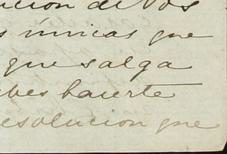 ucion de Vos
s únicas que
que salga
bes hacerte
esolucion que